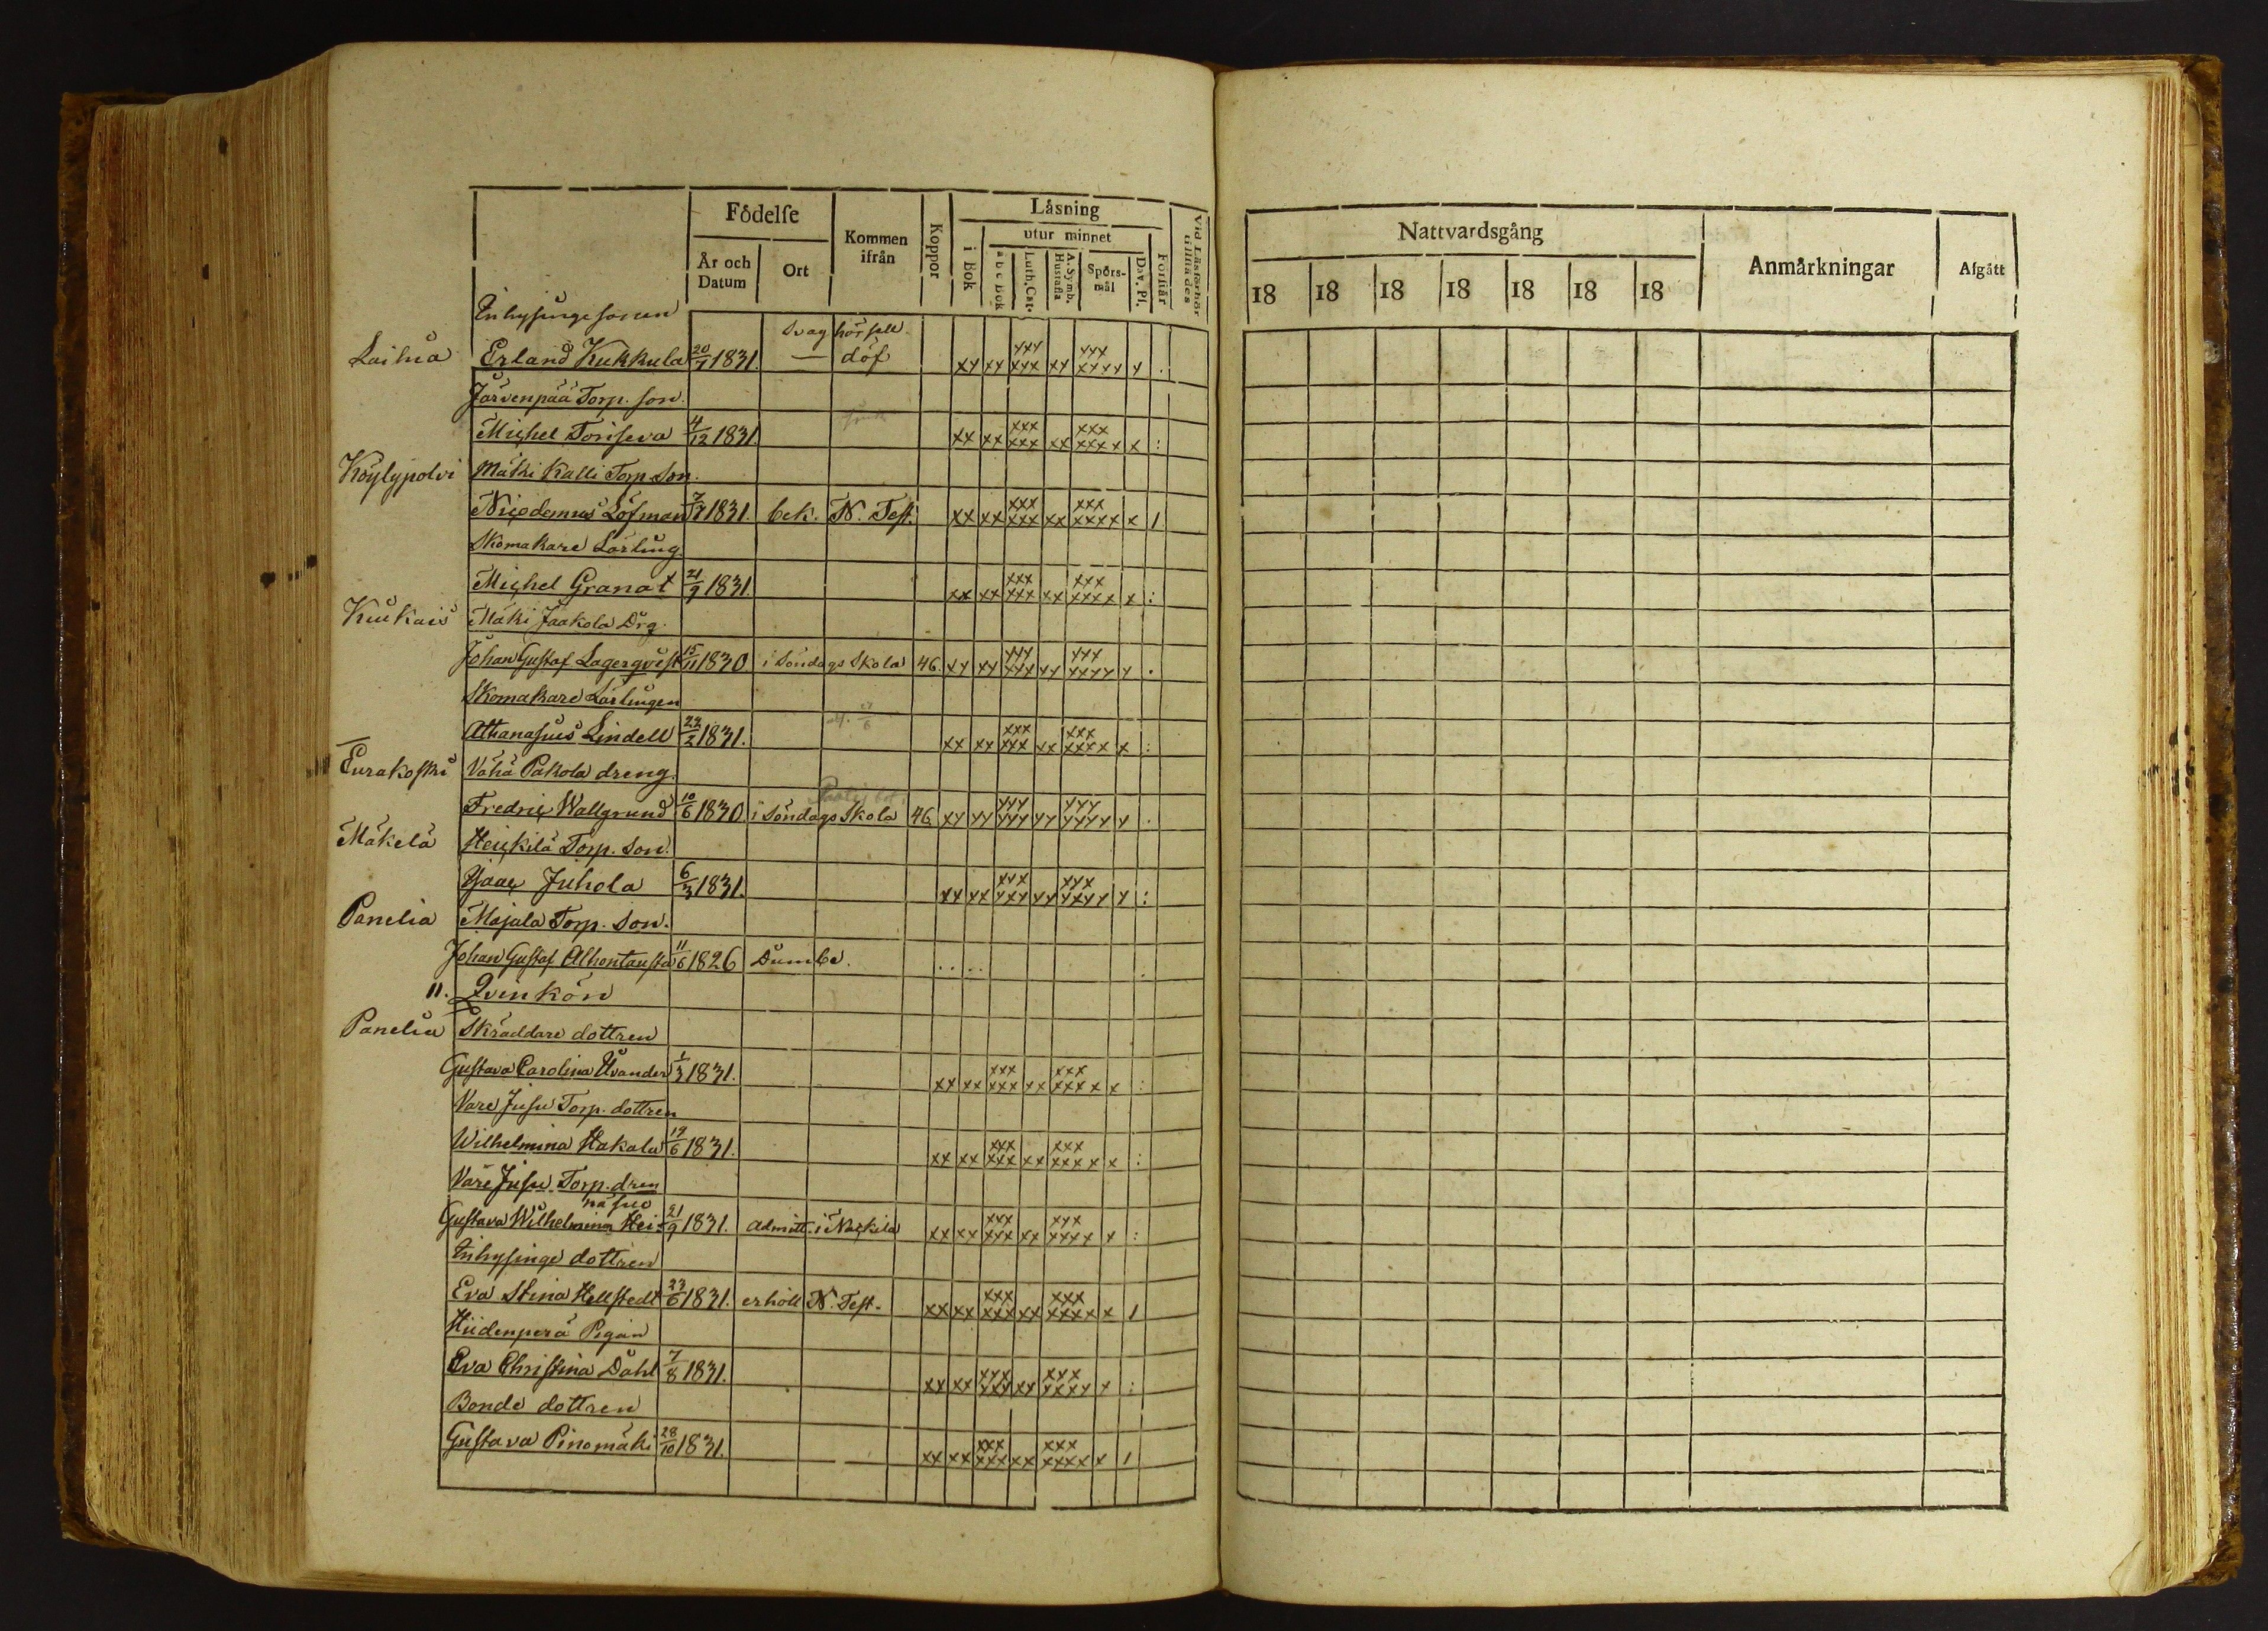 Födelse Låsning
utur minnet
Kommen ifrån Koppor i Bok
År och Datum Ort a b c Bok Luth. Cat. A. Symb. Hustafla Spörs-mål Dav. Ps. Förstår Vid Läsförhör tillstädes
Inhysinge sonen
Svag hörsell
Laihia Erland Kukkula 20/9 1831. — döf xx xx xxx xxx xx xxx xxxx x .
Järvenpää Torp. son.
Michel Toriseva 4/12 1831. xx xx xxx xxx xx xxx xxxx x :
Köylypolvi Mäki Kalli Torp. Son.
Nicodemus Löfman 7/7 1831. bek. N. Test. xx xx xxx xxx xx xxx xxxx x 1
Skomakare Lärling
Michel Granat 21/9 1831. xx xx xxx xxx xx xxx xxxx x :
Kiukais Mäki Jaakola Drg.
Johan Gustaf Lagerqvist 15/11 1830 i Söndags Skola 46. xx xx xxx xxx xx xxx xxxx x .
Skomakare Lärlingen
Athanasius Lindell 22/2 1831. xx xx xxx xxx xx xxx xxxx x :
Eurakoski Vähä Pakola dreng.
Fredric Wallgrund 10/6 1830. i Söndags Skola 46 xx xx xxx xxx xx xxx xxxx x .
Mäkelä Heickilä Torp. Son.
Isaac Juhola 6/3 1831. xx xx xxx xxx xx xxx xxxx x :
Panelia Majala Torp. Son.
Johan Gustaf Alhontausta 11/6 1826 Dumbe. .. .. .
11. Qvinkön
Panelia Skräddare dottren
Gustava Carolina Uvander 1/3 1831. xx xx xxx xxx xx xxx xxxx x :
Vare Jusu Torp. dottren
Wilhelmina Hakala 19/6 1831. xx xx xxx xxx xx xxx xxxx x :
Vare Jusu Torp. dren
näsuo
Gustava Wilhelmina Hei- 21/9 1831. admitt. i Nackila xx xx xxx xxx xx xxx xxxx x :
Inhysinge dottren
Eva Stina Hellstedt 23/6 1831. erhöll N. Test. xx xx xxx xxx xx xxx xxxx x 1
Hiidenperä Pigan
Eva Christina Dahl 7/8 1831. xx xx xxx xxx xx xxx xxxx x :
Bonde dottren
Gustava Pinomäki 28/10 1831. xx xx xxx xxx xx xxx xxxx x 1
Nattvardsgång Anmårkningar Afgått
18 18 18 18 18 18 18